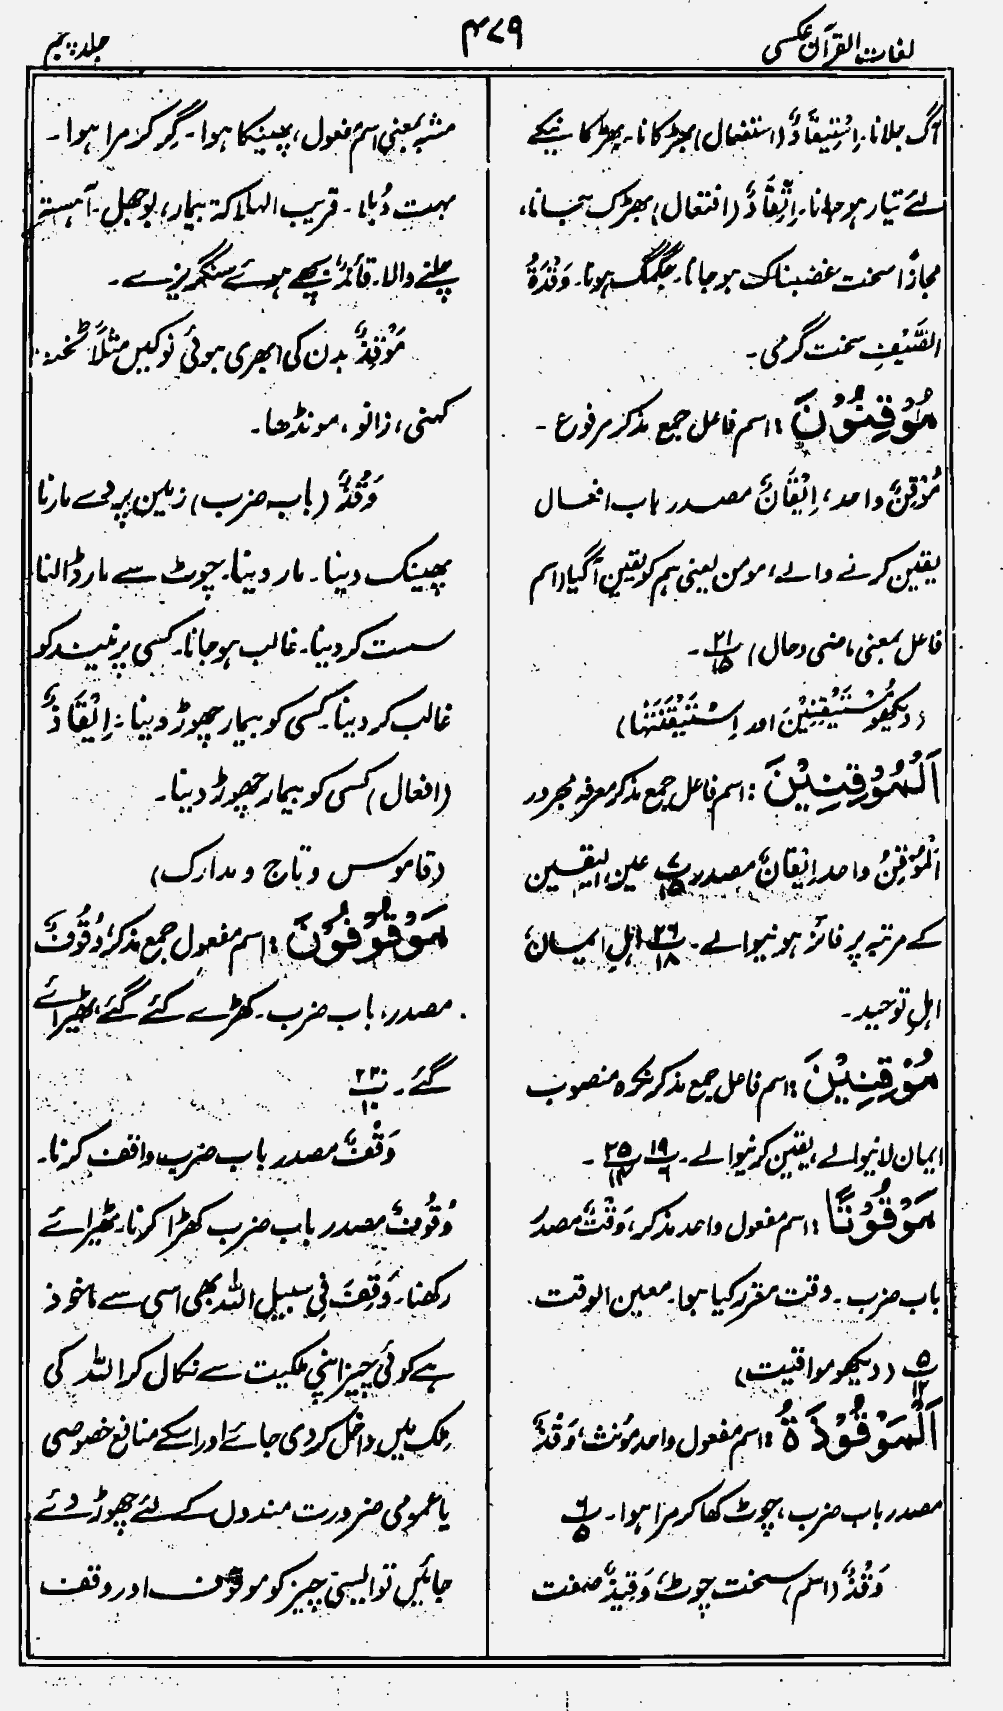 لغات القرآن عکسی
۴۷۹
جلد پنجم
آگ جلانا۔ اِسْتِیْقَادٌ (استفعال) بھڑکانا۔ بھڑکانیکے
لئے تیار ہو جانا۔ اِتِّقَادٌ (افتعال) بھڑک جانا،
مجازًا سخت غضبناک ہو جانا۔ جگمگ ہونا۔ وَقْدَۃُ
الصَّیْفِ سخت گرمی۔
مُوْقِنُوْنَ : اسم فاعل جمع مذکر مرفوع۔
مُوْقِنٌ واحد، اِیْقَانٌ مصدر باب افعال
یقین کرنے والے، مومن یعنی ہم کو یقین آگیا (اسم
فاعل بمعنی ماضی و حال) ۲۱/۱۵۔
(دیکھو مُسْتَیْقِنِیْنَ اور اِسْتَیْقَنَتْہَا)
اَلْمُوْقِنِیْنَ : اسم فاعل جمع مذکر معرفہ مجرور
اَلْمُوْقِنُ واحد اِیْقَانٌ مصدر ۷/۱۵ عین الیقین
کے مرتبہ پر فائز ہونیوالے۔ ۲۶/۱۸ اہلِ ایمان،
اہلِ توحید۔
مُوْقِنِیْنَ : اسم فاعل جمع مذکر نکرہ منصوب
ایمان لانیوالے، یقین کرنیوالے۔ ۱۹/۶ ۲۵/۱۴۔
مَوْقُوْتًا : اسم مفعول واحد مذکر، وَقْتٌ مصدر
باب ضرب۔ وقت مقرر کیا ہوا۔ معین الوقت۔
۵/۱۲ (دیکھو مواقیت)
اَلْمَوْقُوْذَۃُ : اسم مفعول واحد مؤنث، وَقْذٌ
مصدر باب ضرب، چوٹ کھا کر مرا ہوا۔ ۶/۵
وَقْذٌ (اسم) سخت چوٹ، وَقِیْذٌ صفت
مشبہ بمعنی اسم مفعول، پھینکا ہوا۔ گر کر مرا ہوا۔
بہت دُبلا۔ قریب الہلاکۃ بیمار، بوجھل۔ آہستہ
چلنے والا۔ بچھے ہوئے سنگریزے۔
مَوْقِذٌ بدن کی ابھری ہوئی نوکیں مثلًا ٹخنہ
کہنی، زانو، مونڈھا۔
وَقْذٌ (باب ضرب) زمین پر دے مارنا
پھینک دینا۔ مار دینا۔ چوٹ سے مار ڈالنا
سست کر دینا۔ غالب ہو جانا۔ کسی پر نیند کو
غالب کر دینا۔ کسی کو بیمار چھوڑ دینا۔ اِیْقَاذٌ
(افعال) کسی کو بیمار چھوڑ دینا۔
(قاموس و تاج و مدارک)
مَوْقُوْفُوْنَ : اسم مفعول جمع مذکر، وُقُوْفٌ
مصدر، باب ضرب۔ کھڑے کئے گئے، ٹھیرائے
گئے۔ ۲۲/۱۰
وَقْفٌ مصدر باب ضرب، واقف کرنا۔
وُقُوْفٌ مصدر باب ضرب کھڑا کرنا۔ ٹھیرائے
رکھنا۔ وَقِفَ فِی سبیل اللہ بھی اسی سے ماخوذ
ہے کوئی چیز اپنی ملکیت سے نکال کر اللہ کی
ملک میں داخل کر دی جائے اور اسکے منافع خصوصی
یا عمومی ضرورت مندوں کے لئے چھوڑ دئے
جائیں تو ایسی چیز کو موقوف اور وقف